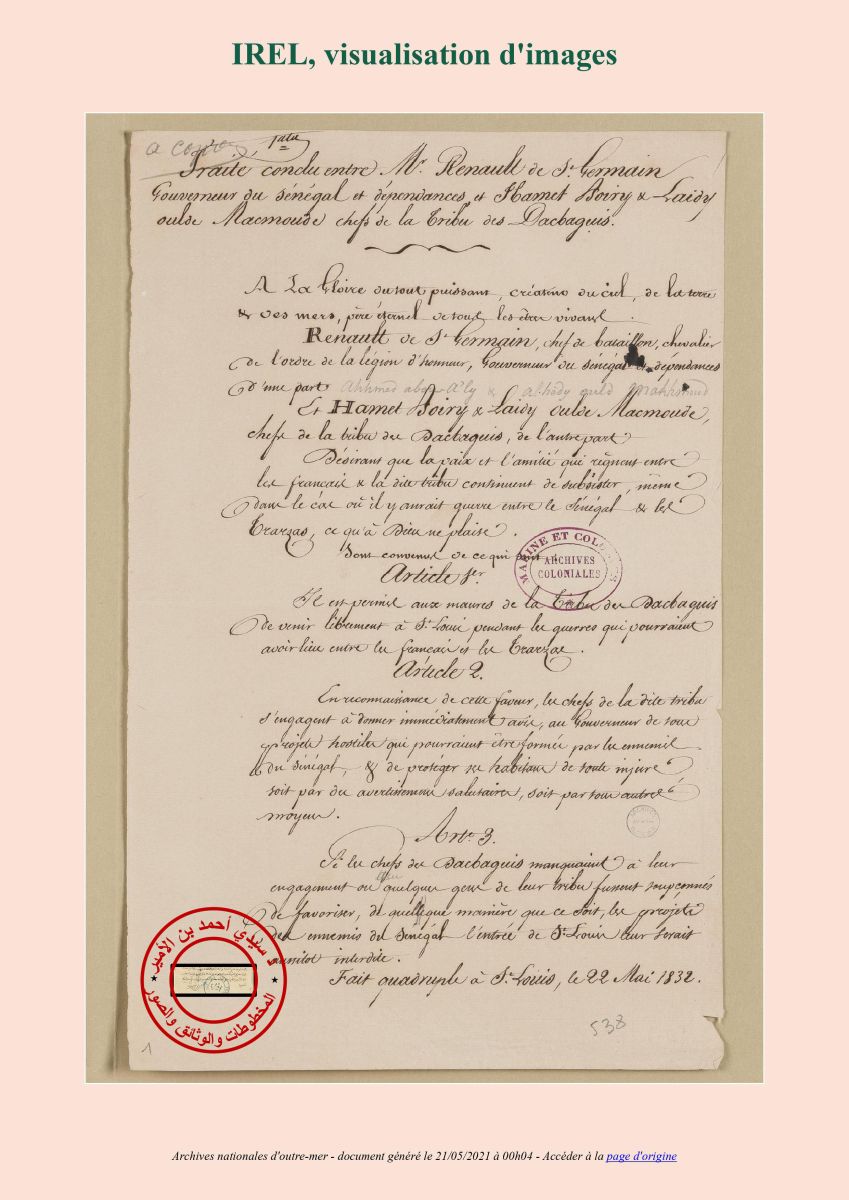 IREL, visualisation d'images
a copier
Traité conclu entre Mr. Renault de St. Germain
Gouverneur du Sénégal et dépendances, et Hamet Boiry & Laidy
oulde Macmoude chefs de la Tribu des Dacbaguis.
A La Gloire du tout puissant, créateur du ciel, de la terre
& des mers, père éternel de tous les êtres vivans.
Renault de St. Germain, chef de bataillon, chevalier
de l'ordre de la légion d'honneur, Gouverneur du Sénégal et dépendances
D'une part
Et Hamet Boiry & Laidy oulde Macmoude,
chefs de la tribu des Dacbaguis, de l'autre part
Désirant que la paix et l'amitié qui règnent entre
les français & la dite tribu continuent de subsister, même
dans le cas où il y aurait guerre entre le Sénégal & les
Trarzas, ce qu'à Dieu ne plaise.
Sont convenus de ce qui suit
MARINE ET COLONIES
ARCHIVES
COLONIALES
Article 1er.
Il est permis aux maures de la Tribu des Dacbaguis
de venir librement à St. Louis pendant les guerres qui pourraient
avoir lieu entre les français et les Trarzas.
Article 2.
En reconnaissance de cette faveur, les chefs de la dite tribu
s'engagent à donner immédiatement avis, au Gouverneur de tous
projets hostiles qui pourraient être formés par les ennemis
du Sénégal, & de protéger ses habitans de toute injure
soit par des avertissemens salutaires, soit par tout autre
moyen.
Arte. 3.
Si les chefs des Dacbaguis manquaient à leur
engagement ou quelques gens de leur tribu fussent soupçonnés
de favoriser, de quelleque manière que ce soit, les projets
des ennemis du Sénégal l'entrée de St. Louis leur serait
aussitot interdite.
Fait quadruple à St. Louis, le 22 Mai 1832.
538
1
د سيدي أحمد بن الأمير
المخطوطات والوثائق والصور
Archives nationales d'outre-mer - document généré le 21/05/2021 à 00h04 - Accéder à la page d'origine